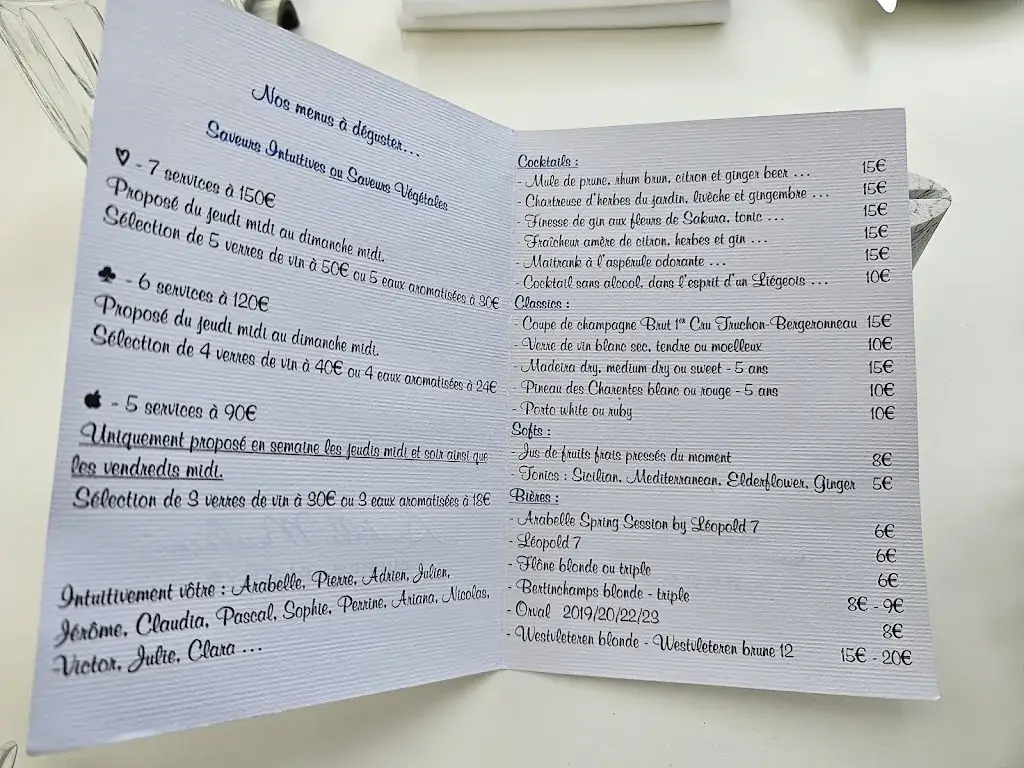 Nos menus à déguster...
Saveurs Intuitives ou Saveurs Végétales
♡ - 7 services à 150€
Proposé du jeudi midi au dimanche midi.
Sélection de 5 verres de vin à 50€ ou 5 eaux aromatisées à 30€
♣ - 6 services à 120€
Proposé du jeudi midi au dimanche midi.
Sélection de 4 verres de vin à 40€ ou 4 eaux aromatisées à 24€
- 5 services à 90€
Uniquement proposé en semaine les jeudis midi et soir ainsi que
les vendredis midi.
Sélection de 3 verres de vin à 30€ ou 3 eaux aromatisées à 18€
Intuitivement vôtre : Arabelle, Pierre, Adrien, Julien,
Jérôme, Claudia, Pascal, Sophie, Perrine, Ariana, Nicolas,
Victor, Julie, Clara ...
Cocktails :
- Mule de prune, rhum brun, citron et ginger beer ... 15€
- Chartreuse d'herbes du jardin, livèche et gingembre ... 15€
- Finesse de gin aux fleurs de Sakura, tonic ... 15€
- Fraîcheur amère de citron, herbes et gin ... 15€
- Maitrank à l'aspérule odorante ... 15€
- Cocktail sans alcool, dans l'esprit d'un Liégeois ... 10€
Classics :
- Coupe de champagne Brut 1er Cru Truchon-Bergeronneau 15€
- Verre de vin blanc sec, tendre ou moelleux 10€
- Madeira dry, medium dry ou sweet - 5 ans 15€
- Pineau des Charentes blanc ou rouge - 5 ans 10€
- Porto white ou ruby 10€
Softs :
- Jus de fruits frais pressés du moment 8€
- Tonics : Sicilian, Mediterranean, Elderflower, Ginger 5€
Bières :
- Arabelle Spring Session by Léopold 7 6€
- Léopold 7 6€
- Flône blonde ou triple 6€
- Bertinchamps blonde - triple 8€ - 9€
- Orval 2019/20/22/23 8€
- Westvleteren blonde - Westvleteren brune 12 15€ - 20€